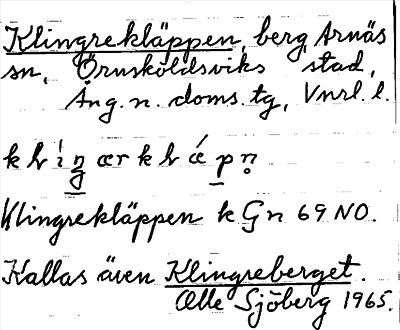 Klingrekläppen, berg, Arnäs
sn, Örnsköldsviks stad,
Ång. n. doms. tg, Vnrl. l.
Klingrekläppen k Gn 69 NO.
Kallas även Klingreberget.
Olle Sjöberg 1965.